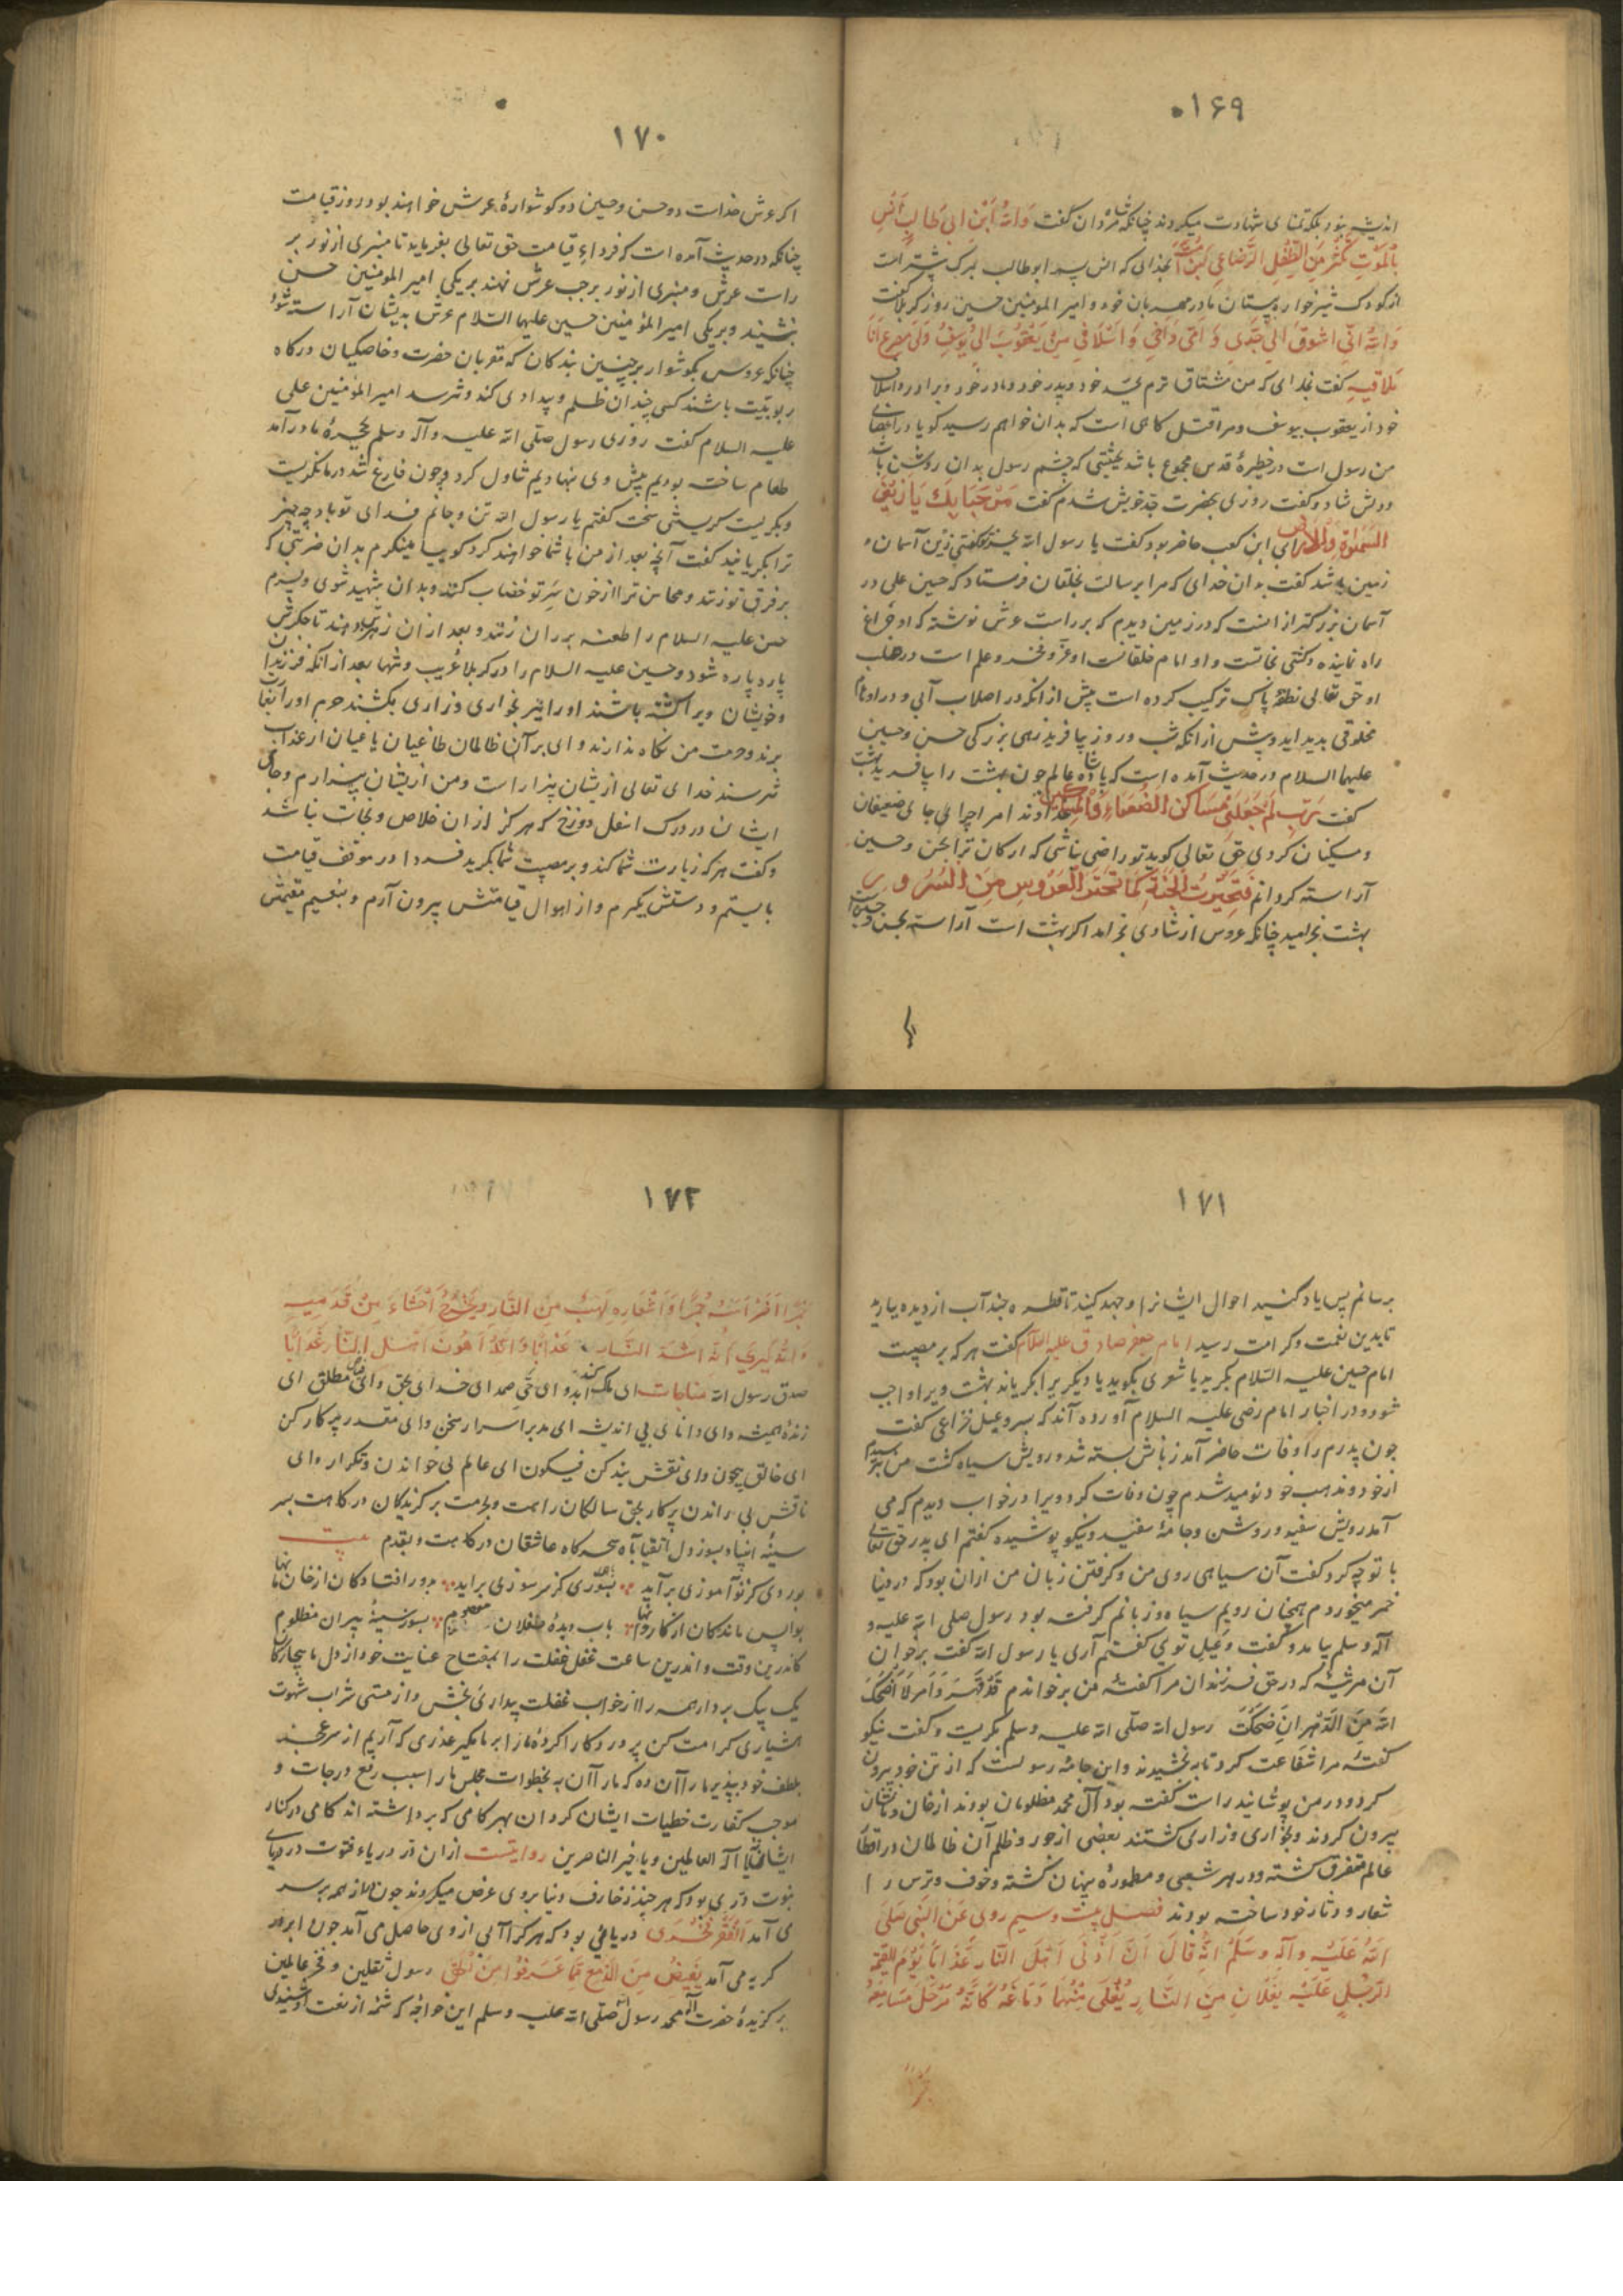 ۱۶۹
اندیشه نبود بلکه تمنای شهادت میکردند چنانکه شاه مردان گفت وَاللهُ اَبْنُ ابی طَالِبٍ آنَسُ
بِالْمَوْتِ مِنَ الطِّفْلِ الرَّضَاعِی لَبَنَ اُمِّهِ بخدای که انس پسر ابو طالب بمرک بیشتر است
از کودک شیرخواره به پستان مادر مهربان خود و امیر المومنین حسین روز کربلا گفت
وَاللهِ اِنّی اشوقُ اِلی جَدّی وَ اُمّی وَ اَخی وَ اَسْلافی مِنْ یَعْقُوبَ الی یُوسُفَ وَلی مصرع اَنَا
مُلاقیهِ گفت بخدای که من مشتاق ترم بجد خود و پدر خود و مادر خود و برادر و اسلاف
خود از یعقوب بیوسف و مرا قتل کاهی است که بدان خواهم رسید کویا در اعضای
من رسول است در حظیرهٔ قدس مجموع باشد بحیثیتی که چشم رسول بدان روشن باشد
و دلش شاد و گفت روزی بحضرت جد خویش شدم گفت مَرْحَبَا بِكَ يَا زَيْنَ
السَّمٰوَاةِ وَالْاَرْضِ ابی ابن کعب حاضر بود گفت یا رسول الله بجز تو کسی زین آسمان و
زمین باشد گفت بدان خدای که مرا برسالت بخلقان فرستاد که حسین علی در
آسمان بزرکتر از انست که در زمین دیدم که بر راست عرش نوشته که او چراغ
راه نماینده و کشتی نجاتست و او امام خلقانست او عز و فخر و علم است در صلب
او حق تعالی نطفهٔ پاک ترکیب کرده است پیش از انکه در اصلاب آبی و در ارحام
مخلوقی بدید آید و پیش از انکه شب و روز بیافریند زهی بزرکی حسن و حسین
علیهما السلام در حدیث آمده است که پادشاه عالم چون بهشت را بیافرید بهشت
گفت یَرَبِّ لِمَ جَعَلْتَنی مَسَاکنَ الضُّعَفاءِ وَالْمِسکینِ خداوندا مرا چرا جای ضعیفان
و مسکینان کردی حق تعالی کوید تو راضی نباشی که ارکان ترا بحسن و حسین
آراسته کردانم فَتَحَیَّرَتُ الْجَنَّةُ کَمَا تَحَیَّرُ الْعَرُوسُ مِنَ السُّرُورِ
بهشت بخرامید چنانکه عروس از شادی بخرامد اکر بهشت است آراسته بحسن و حسین است
۱۷۰
اکر عرش خداست دو حسن و حسین دو کوشوارهٔ عرش خواهند بود در روز قیامت
چنانکه در حدیث آمده است که فرداءِ قیامت حق تعالی بفرماید تا منبری از نور بر
راست عرش و منبری از نور بر چپ عرش نهند بر یکی امیر المومنین حسن
نشیند و بر یکی امیر المؤمنین حسین علیهما السّلام عرش بدیشان آراسته شود
چنانکه عروس بکوشوار بر چنین بندکان که مقربان حضرت و خاصکیان درکاه
ربوبیّت باشند کسی چندان ظلم و بیدادی کند و نترسد امیر المؤمنین علی
علیه السلام گفت روزی رسول صلّی الله علیه وآله وسلم بحجرهٔ ما در آمد
طعام ساخته بودیم پیش وی بنهادیم تناول کرد و چون فارغ شد در ما نکریست
و بکریست کریستنی سخت گفتم یا رسول الله تن و جانم فدای تو باد چه چیز
ترا بکریانید گفت آنچه بعد از من با شما خواهند کرد کوییا مینکرم بدان ضربتی که
بر فرق تو زنند و محاسن ترا از خون سَرِ تو خضاب کنند و بدان شهید شوی و پسرم
حسن علیه السلام را طعنه بر ران زنند و بعد از ان زهرش دهند تا جکرش
پاره پاره شود و حسین علیه السلام را در کربلا غریب و تنها بعد از انکه فرزندان
و خویشان ویرا کشته باشند او را نیز بخواری و زاری بکشند حرم او را بغارت
برند و حرمت من نکاه ندارند وای بر آن ظالمان طاغیان یاغیان از عذاب
نترسند خدای تعالی ازیشان بیزار است و من ازیشان بیزارم و جای
ایشان در درک اسفل دوزخ که هرکز از ان خلاص و نجات نباشد
و گفت هرکه زیارت شما کند و بر مصیبت شما بکرید فردا در موقف قیامت
بایستم و دستش بکیرم و از اهوال قیامتش بیرون آرم و بنعیم مقیمش
۱۷۱
برسانم پس یاد کنید احوال ایشانرا و جهد کنید تا قطرهٔ چند آب از دیده ببارید
تا بدین نعمت و کرامت رسید امام جعفر صادق علیه السّلام گفت هر که بر مصیبت
امام حسین علیه السّلام بکرید یا شعری بکوید یا دیکریرا بکریاند بهشت ویرا واجب
شود و در اخبار امام رضی علیه السلام آورده آند که پسر دعبل خزاعی گفت
چون پدرم را وفات حاضر آمد زبانش بسته شد و رویش سیاه کشت من بترسیدم
از خود و مذهب خود نومید شدم چون وفات کرد ویرا در خواب دیدم که می
آمد رویش سفید و روشن و جامهٔ سفید و نیکو پوشیده گفتم ای پدر حق تعالی
با تو چه کرد گفت آن سیاهی روی من و کرفتن زبان من از ان بود که در دنیا
خمر میخوردم همچنان رویم سیاه و زبانم کرفته بود رسول صلی الله علیه و
آله و سلم بیامد و گفت دعبل توی گفتم آری یا رسول الله گفت برخوان
آن مرثیه که در حق فرزندان مرا گفتهٔ من برخواندم
رسول الله صلّی الله علیه وسلم بکریست و گفت نیکو
گفتهٔ مرا شفاعت کرد تا ببخشیدند و این جامهٔ رسولست که از تن خود بیرون
کرد و در من پوشانید راست گفته بود آل محمد مظلومان بودند از خان و مانشان
بیرون کردند و بخواری و زاری کشتند بعضی از جور و ظلم آن ظالمان در اقطار
عالم متفرق کشته و در هر شعبی و مطمورهٔ پنهان کشته و خوف و ترس را
شعار و دثار خود ساخته بودند فصل بیست و سیم روی عَنِ النَّبی صَلّیَ
اللهُ عَلَیْهِ وآلِهِ وَسَلَّمْ انهُ قَالَ اَنَّ اَدْنٰی اَهْلَ النَّار عَذَابًا یَوْمَ القیمة
الرَّجُلٍ عَلَیْهِ نَعْلَانِ مِنَ النَّارِ یُغْلَی مِنْهُمَا دَمَاغُهُ کَاَنَّهُ مَرْجَلٌ مَسَامِعُهُ
۱۷۲
جَمْرًا وَ اَضْرَاسُهُ جَمْرًا وَ اَشْفَارِهِ لَهَبٌ مِنَ النَّارِ وَیَخْرُجُ اَحْشَاءَ مِنْ قَدَمَیْهِ
وَ اَنَّهُ لَیَری اَنّهُ اشدّ النّار عَذَابًا وَ اِنَّهُ اَهْوَنَ اَهْل النَّار عَذَابًا
صدق رسول الله مناجات ای ملک ابد و ای حی صمد ای خدای بحق وای مطلق ای
زندهٔ همیشه وای دانای بی اندیشه ای مدبر اسرار سخن وای مقدر پرکار کن
ای خالق بیچون وای نقش بند کن فیکون ای عالم بی خواندن و تکرار وای
ناقش بی راندن پرکار بحق سالکان راهت و بحرمت برکزیدکان درکاهت بسر
سینهٔ انبیا و بسوز دل اتقیا بآه سحرکاه عاشقان درکاهت و بقدم بیت
بوردی کز نوآموزی بر آید بسوزی کز سر سوزی برآید بدور افتادکان از خان مانها
بواپس ماندکان از کاروانها بآب دیدهٔ طفلان معصوم بسوز سینهٔ پیران مظلوم
کاندرین وقت و اندرین ساعت قفل غفلت را بمفتاح عنایت خود از دل ما بیچارکان
یک بیک بردار همه را از خواب غفلت بیداری بخش و از مستی شراب شهوت
هشیاری کرامت کن پروردکارا کردهٔ ما را بر ما مکیر عذری که آریم از سر عجز
بلطف خود بپذیر ما را آن ده که ما را آن به بخطوات مجلس ما را سبب رفع درجات و
موجب کفارت خطیات ایشان کردان بهر کامی که برداشته اند کامی در کنار
ایشان نه یا اله العالمین و یا خیر الناصرین روایتست از ان در دریاء فتوت در دریای
نبوت دری بود که هر چند زخارف دنیا بروی عرض میکردند چون از همه بر سر
می آمد الْفَقْرُ فَخْری دریائی بود که هرکرا آبی از وی حاصل می آمد چون ابر در
کریه می آمد یَفیضُ مِنَ الدَّمعِ مِمَّا عَرَفُوا مِنَ الْحَقِّ رسول ثقلین و فخر عالمین
برکزیدهٔ حضرت اله محمد رسول الله صلّی الله علیه وسلم این خواجهٔ که شمهٔ از نعت او شنیدی